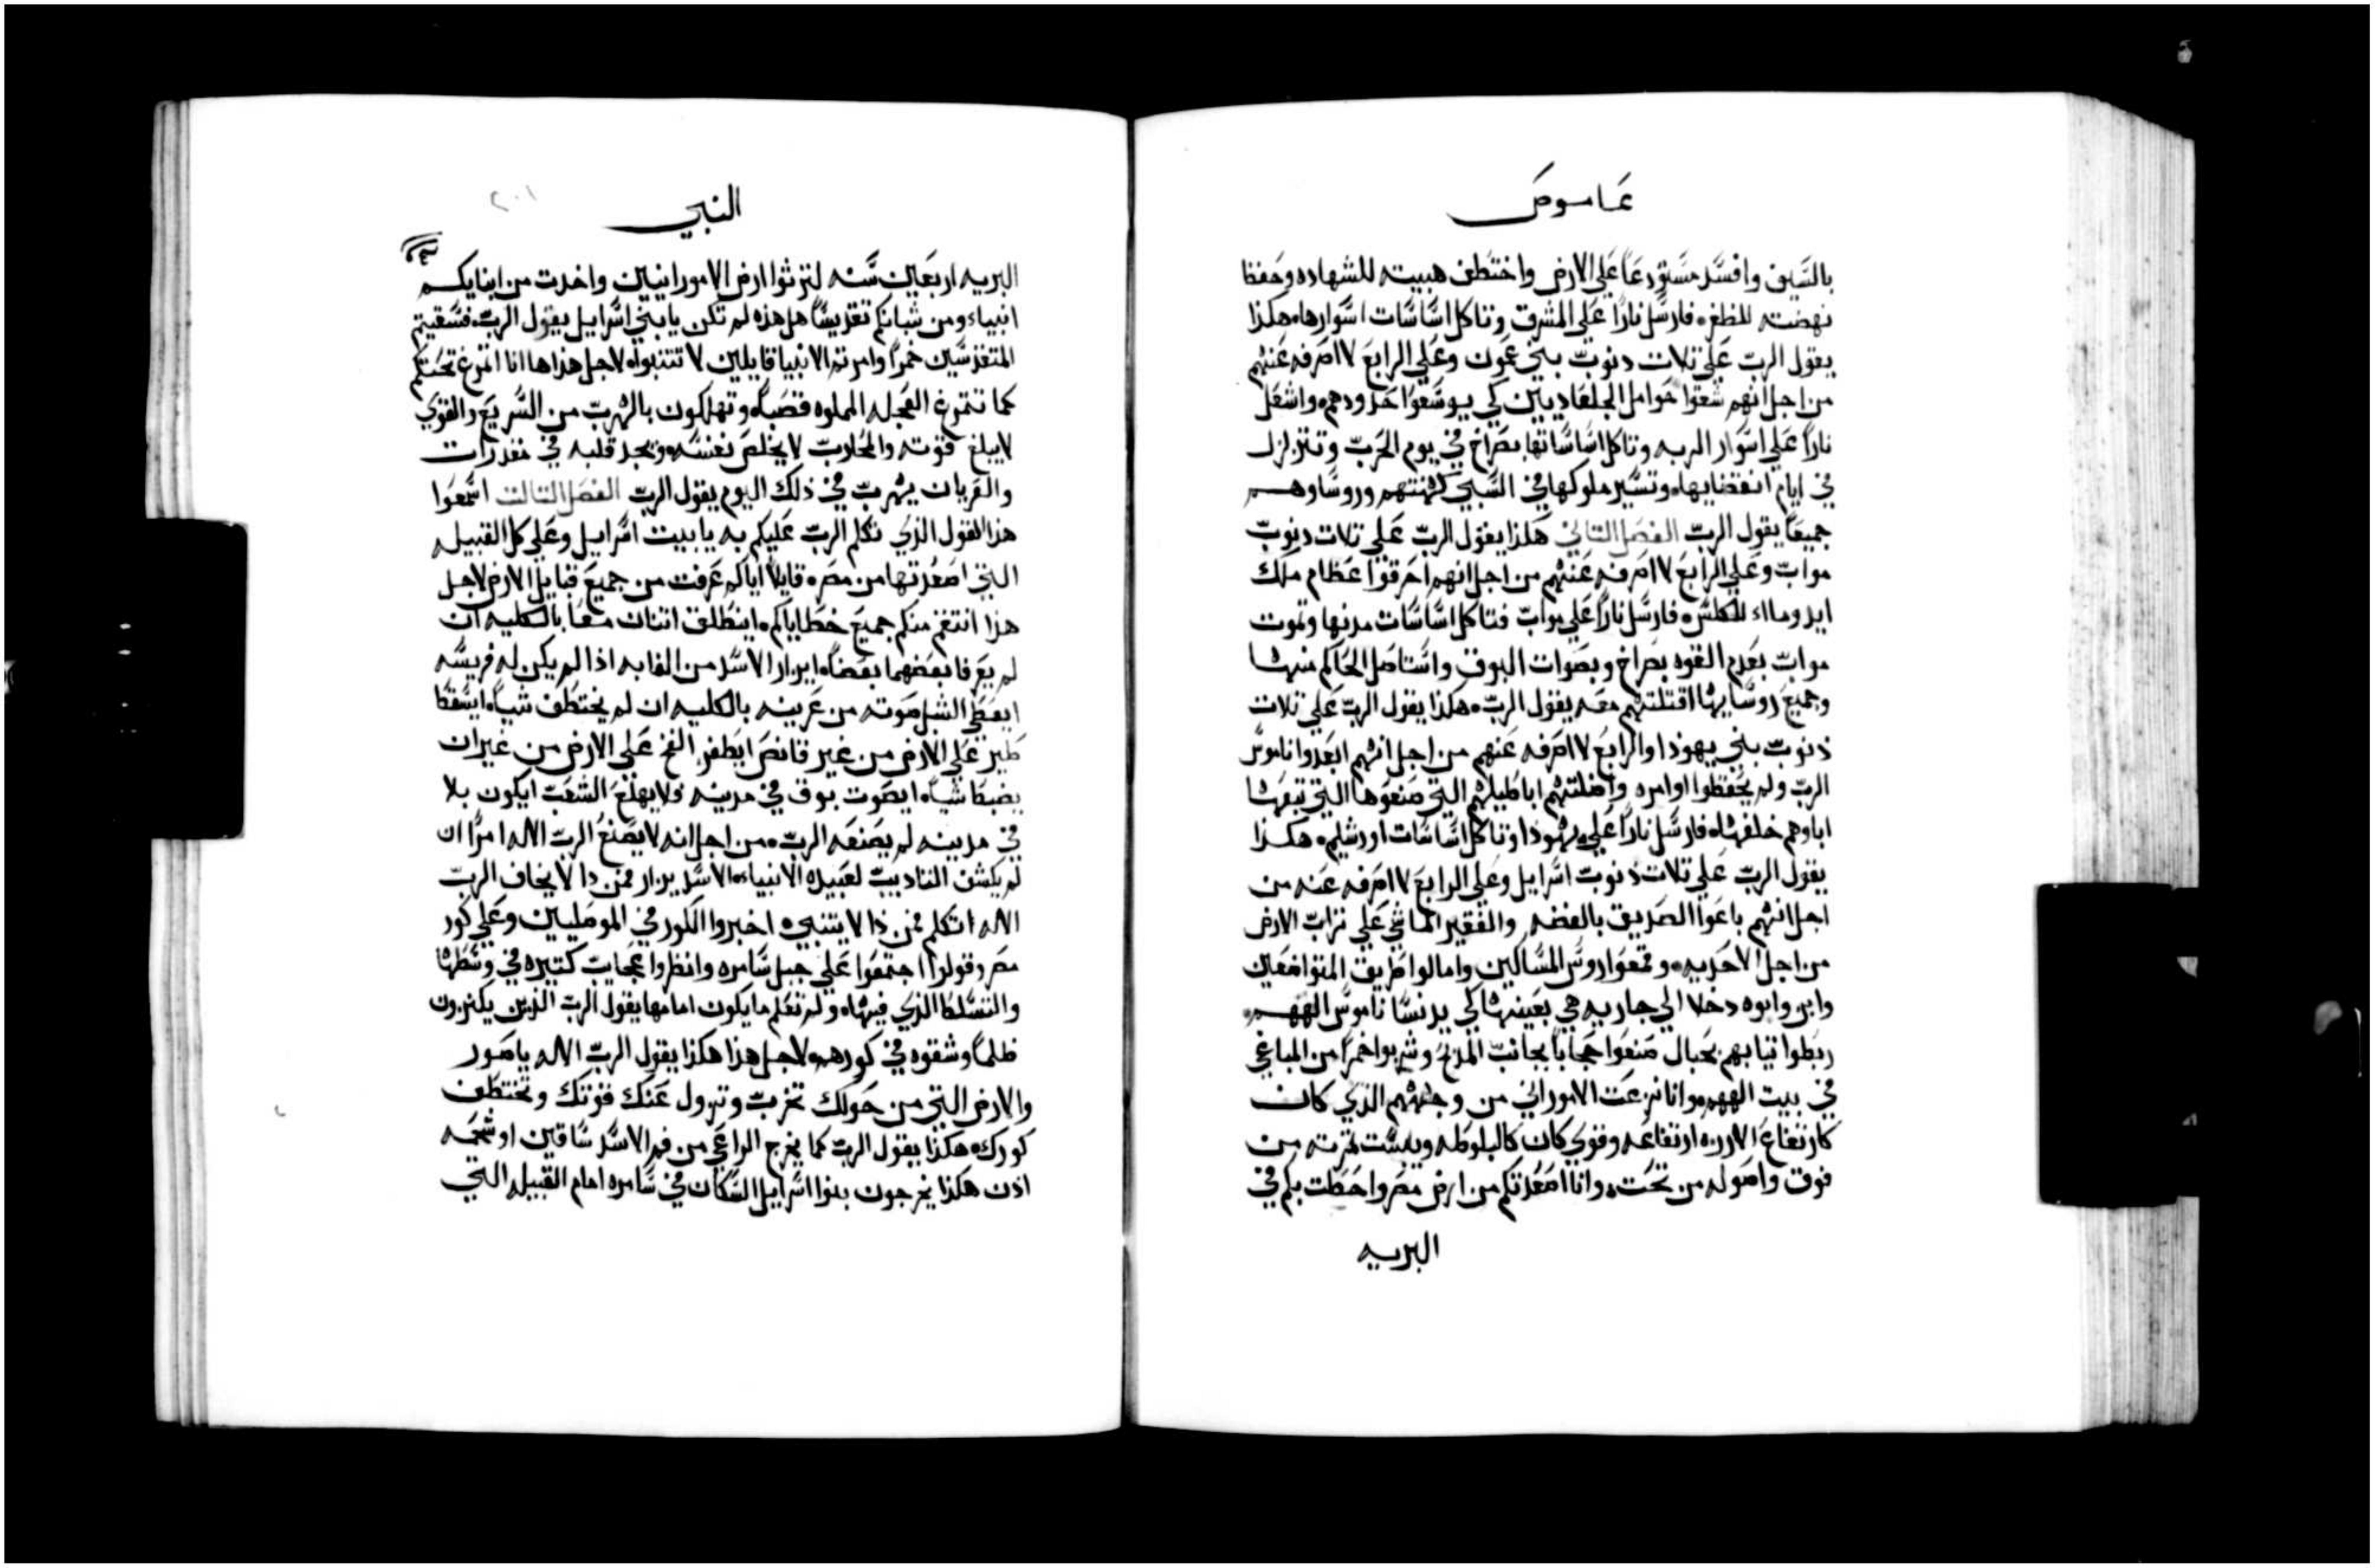 عاموص
بالسيف وافسد مستودعًا علي الارض واختطف هيبته للشهاده وحفظ
نهضته للظفر. فارسل نارًا علي المشرق وتاكل اساسات اسوارها. هكذا
يقول الرب علي تلات دنوب بني عمون وعلي الرابع لا اصرفه عنهم
من اجل انهم شقوا حوامل الجلعاديين كي يوسعوا حدودهم. واشعل
نارًا علي اسوار الربه وتاكل اساساتها بصراخ في يوم الحرب وتتزلزل
في ايام انقضايها. وتسير ملوكها في السبي كهنتهم وروساوهم
جميعًا يقول الرب الفصل التاني هكذا يقول الرب علي تلات دنوب
مواب وعلي الرابع لا اصرفه عنهم من اجل انهم احرقوا عظام ملك
ايدوماء للكلس. فارسل نارًا علي مواب فتاكل اساسات مدنها وتموت
مواب بعدم القوه بصراخ وبصوات البوق واستاصل الحاكم منها
وجميع روسايها اقتلتهم معه يقول الرب. هكذا يقول الرب علي تلات
ذنوب بني يهوذا والرابع لا اصرفه عنهم من اجل انهم ابعدوا ناموس
الرب ولم يحفظوا اوامره واضلتهم اباطيلهم التي صنعوها التي تبعها
اباوهم خلفها. فارسل نارًا علي يهوذا وتاكل اساسات اورشليم. هكذا
يقول الرب علي تلات ذنوب اسرايل وعلي الرابع لا اصرفه عنه من
اجل انهم باعوا الصديق بالفضه والفقير الماشي علي تراب الارض
من اجل الاحديه. وقمعوا روس المساكين وامالوا طريق المتواضعين
وابن وابوه دخلا الي جاريه هي بعينها كي يدنسا ناموس الههم.
ربطوا تيابهم بحبال صنعوا حجابًا بجانب المذبح وشربوا خمرًا من المباغي
في بيت الههم. وانا نزعت الاموراني من وجههم الذي كان
كارتفاع الارزه ارتفاعه وقوي كان كالبلوطه ويبست تمرته من
فوق واصوله من تحت. وانا اصعدتكم من ارض مصر واحطت بكم في
البريه
النبي
٢٠١
البريه اربعين سنه لترثوا ارض الامورانيين واخدت من ابنايكم
انبياء ومن شبانكم تقديسًا هل هذه لم تكن يا بني اسرايل يقول الرب. فسقيتم
المتقدسين خمرًا وامرتم الانبيا قايلين لا تتنبوا. لاجل هذا ها انا اتمرغ تحتكم
كما تتمرغ العجله المملوه قصبًا. وتهلكون بالهرب من السريع والقوي
لا يبلغ قوته والمحارب لا يخلص نفسه. ويجد قلبه في مقدرات
والعريان يهرب في ذلك اليوم يقول الرب الفصل التالت اسمعوا
هذا القول الذي تكلم الرب عليكم به يا بيت اسرايل وعلي كل القبيله
التي اصعدتها من مصر. قايلًا اياكم عرفت من جميع قبايل الارض لاجل
هذا انتقم منكم جميع خطاياكم. اينطلق اتنان معًا بالكليه ان
لم يعرفا بعضهما بعضًا. ايزار الاسد من الغابه اذا لم يكن له فريسه
ايعطي الشبل صوته من عرينه بالكليه ان لم يختطف شيًا. ايسقط
طير علي الارض من غير قانص ايطفر الفخ علي الارض من غير ان
يضبط شيًا. ايصوت بوق في مدينه ولا يهلع الشعب ايكون بلا
في مدينه لم يصنعه الرب. من اجل انه لا يصنع الرب الاله امرًا ان
لم يكشف التاديب لعبيده الانبياء. الاسد يزار فمن دا لا يخاف الرب
الاله اتكلم فمن ذا لا يتنبي. اخبروا الكور في الموصليين وعلي كور
مصر وقولوا اجتمعوا علي جبل سامره وانظروا عجايب كتيره في وسطها
والتسلط الذي فيها. ولم تعلم ما يكون امامها يقول الرب الذين يكنزون
ظلمًا وشقوه في كورهم. لاجل هذا هكذا يقول الرب الاله يا صور
والارض التي من حولك تخرب وتزول عنك قوتك وتختطف
كورك. هكذا يقول الرب كما يخرج الراعي من فم الاسد ساقين او شحمه
اذن هكذا يخرجون بنوا اسرايل السكان في سامره امام القبيله التي